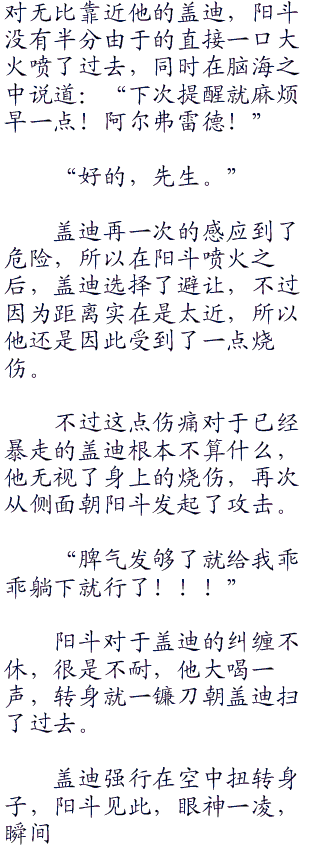 对无比靠近他的盖迪，阳斗
没有半分由于的直接一口大
火喷了过去，同时在脑海之
中说道：“下次提醒就麻烦
早一点！阿尔弗雷德！”
“好的，先生。”
盖迪再一次的感应到了
危险，所以在阳斗喷火之
后，盖迪选择了避让，不过
因为距离实在是太近，所以
他还是因此受到了一点烧
伤。
不过这点伤痛对于已经
暴走的盖迪根本不算什么，
他无视了身上的烧伤，再次
从侧面朝阳斗发起了攻击。
“脾气发够了就给我乖
乖躺下就行了！！！”
阳斗对于盖迪的纠缠不
休，很是不耐，他大喝一
声，转身就一镰刀朝盖迪扫
了过去。
盖迪强行在空中扭转身
子，阳斗见此，眼神一凌，
瞬间